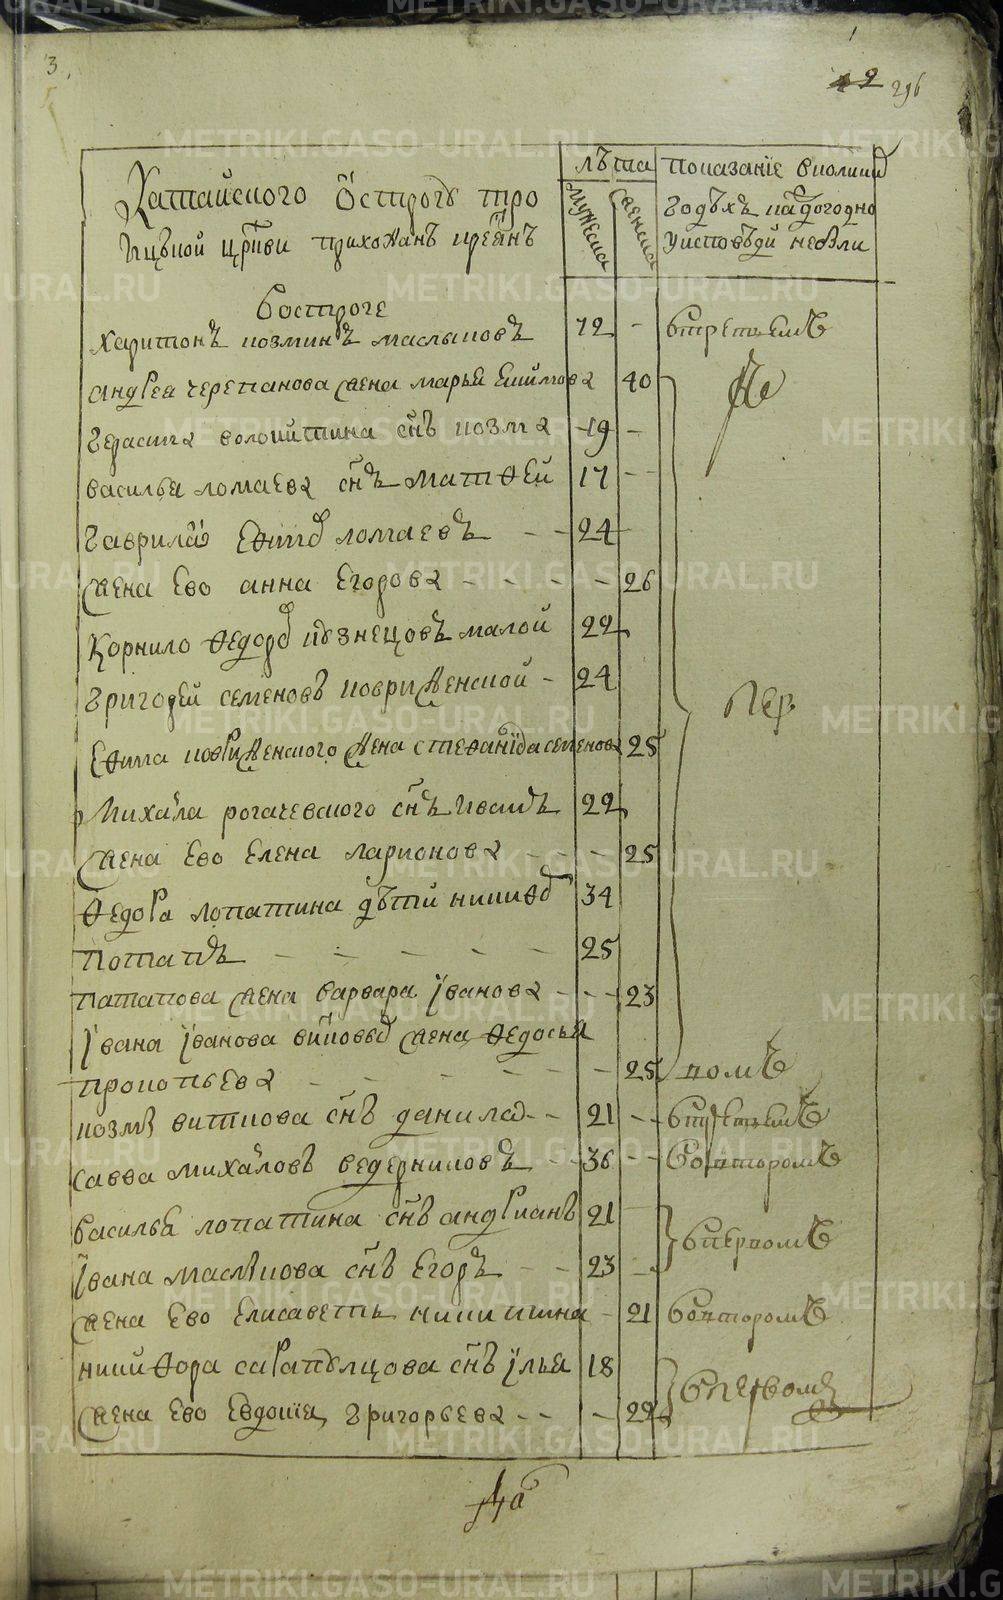 3
1
42 296
лѣта
показание вколики
Катайского Острогу тро
мужеска
женска
годѣхъ на подогодно
ицкой цркви прихожанъ кресянъ
уисповѣди небыли
Вострогe
Харитонъ козминъ маслыковъ 72 - втретьемъ
андрея черепанова жена марья екимова 40
герасима волокитина снъ козма 19 -
василья ломаева снъ матфей 17 -
гаврила ефимов ломаевъ - - 24 -
жена ево анна егорова - - - - 26
Корнило федоров кузнецовъ малой 22
григорей семеновъ ковриженской - 24
пер
ефима коврижеского жена стефанида семенова 25
михаила рогачевского снъ иванъ 22
жена ево елена ларионова - - - 25
федора лопатина дѣти никифор 34
потапъ - - - - - 25
патапова жена варвара iванова - - - 23
iвана iванова быковых жена федосья
прокопьева - - - - - - 25 вомъ
козмы витнова снъ данила - - 21 - - втретьемъ
савва михаловъ ведерниковъ - - 36 - - вовторомъ
василья лопатина снъ андриянъ 21
впервомъ
iвана маслыкова снъ егоръ - - 23 - -
жена ево елисаветъ никитина - 21 вовторомъ
никифора сарапулцова снъ iлья 18
впервомъ
жена ево евдокия григорьева - - - 22
METRIKI.GASO-URAL.RU